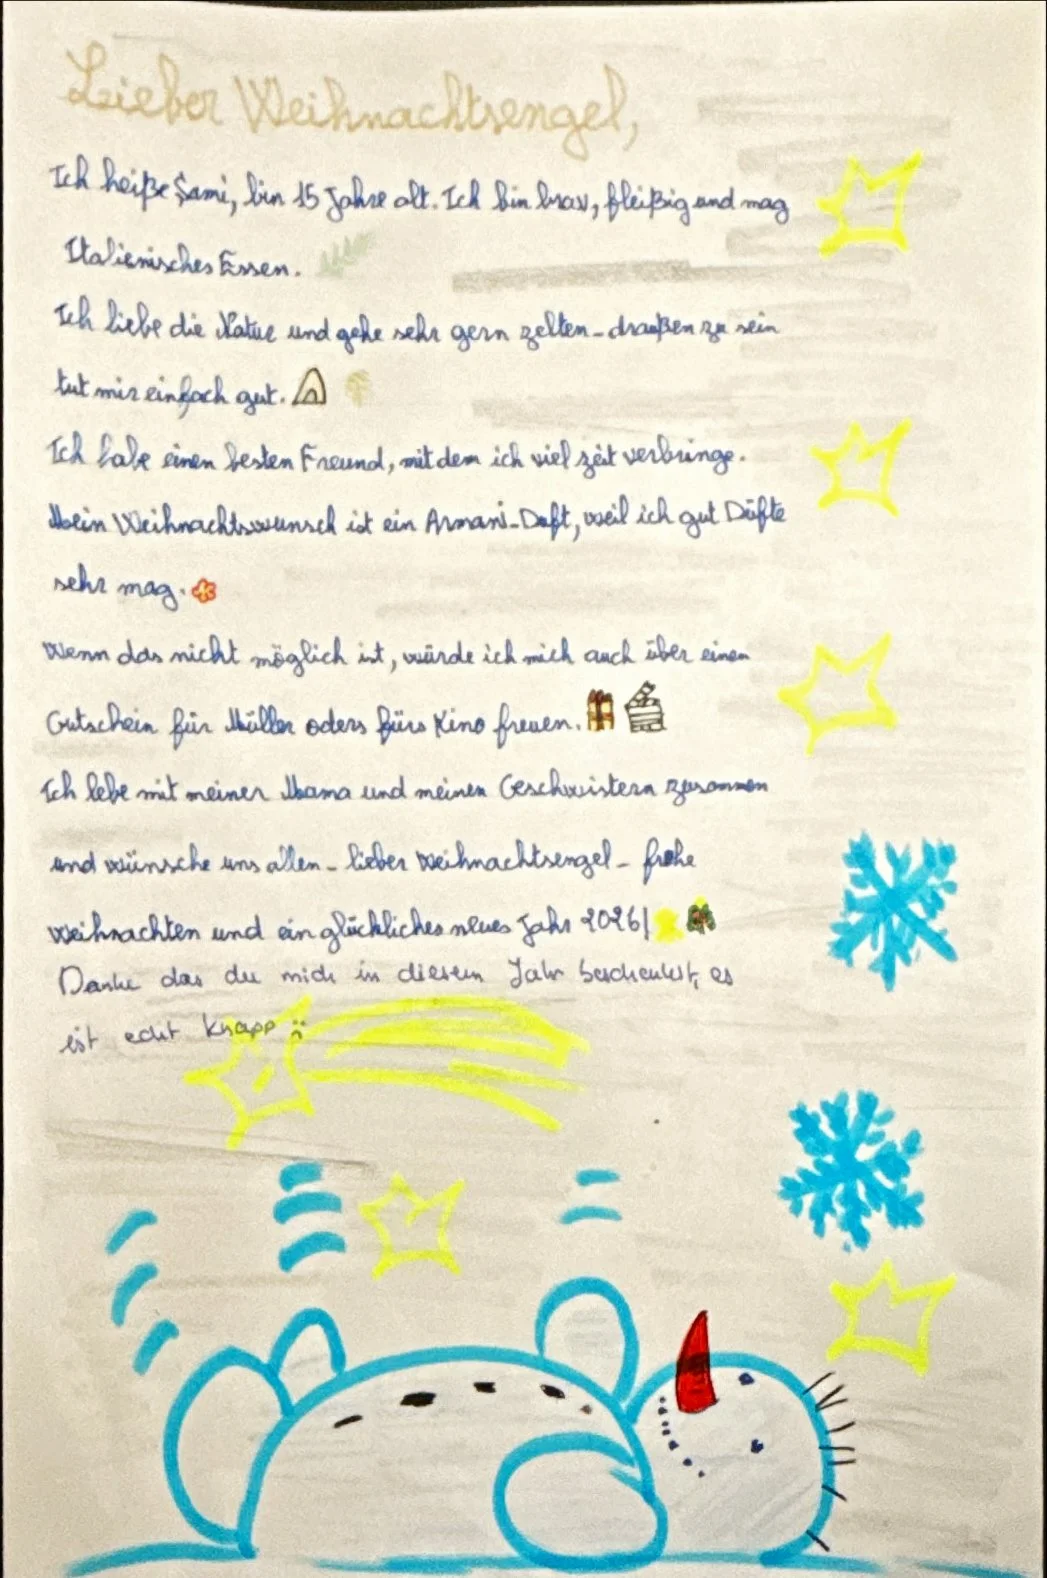 Lieber Weihnachtsengel,
Ich heiße Sami, bin 15 Jahre alt. Ich bin brav, fleißig und mag
Italienisches Essen.
Ich liebe die Natur und gehe sehr gern zelten - draußen zu sein
tut mir einfach gut.
Ich habe einen besten Freund, mit dem ich viel zeit verbringe.
Mein Weihnachtswunsch ist ein Armani-Duft, weil ich gut Düfte
sehr mag.
Wenn das nicht möglich ist, würde ich mich auch über einen
Gutschein für Müller oders fürs Kino freuen.
Ich lebe mit meiner Mama und meinen Geschwistern zusammen
und wünsche uns allen - lieber Weihnachtsengel - frohe
Weihnachten und ein glückliches neues Jahr 2026!
Danke das du mich in diesem Jahr beschenkst, es
ist echt knapp :(